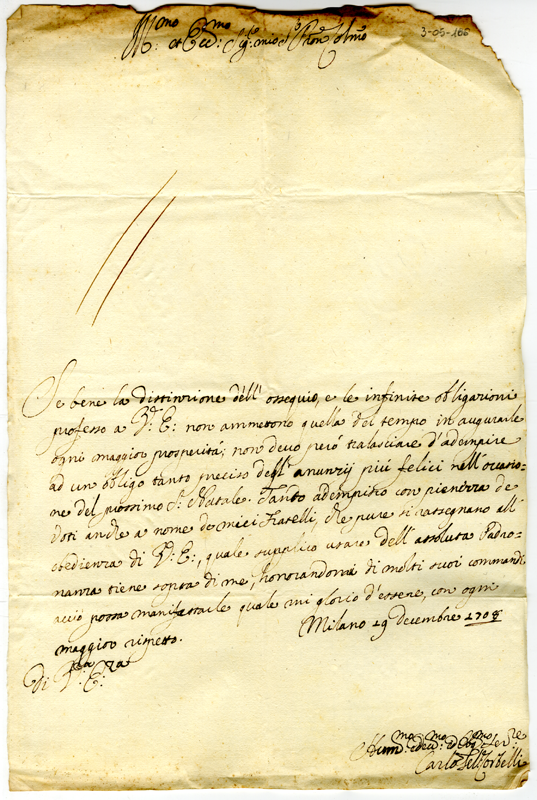 Ill.mo et Ecc.mo Sig.r mio P.ron Col.mo
3-05-166
Se bene la distinzione dell' ossequio, e le infinite obligazioni
professo a V.ra E: non ammettono quella del tempo in augurarle
ogni maggior prosperità; non devo però tralasciare d'adempire
ad un obligo tanto preciso degl' anunzij più felici nell' occasio=
ne del prossimo S. Natale. Tanto adempisco con pienezza de
voti anche a nome de miei Fratelli, che pure si rassegnano all'
obedienza di V.ra E:, quale supplico usare dell' assoluta Padro=
nanza tiene sopra di me, honorandomi di molti suoi commandi
acciò possa manifestarle quale mi glorio d'essere, con ogni
maggior rispetto.
Milano 19 decembre
di V.ra E.za
Hum.mo ed Obl.mo Ser.re
Carlo